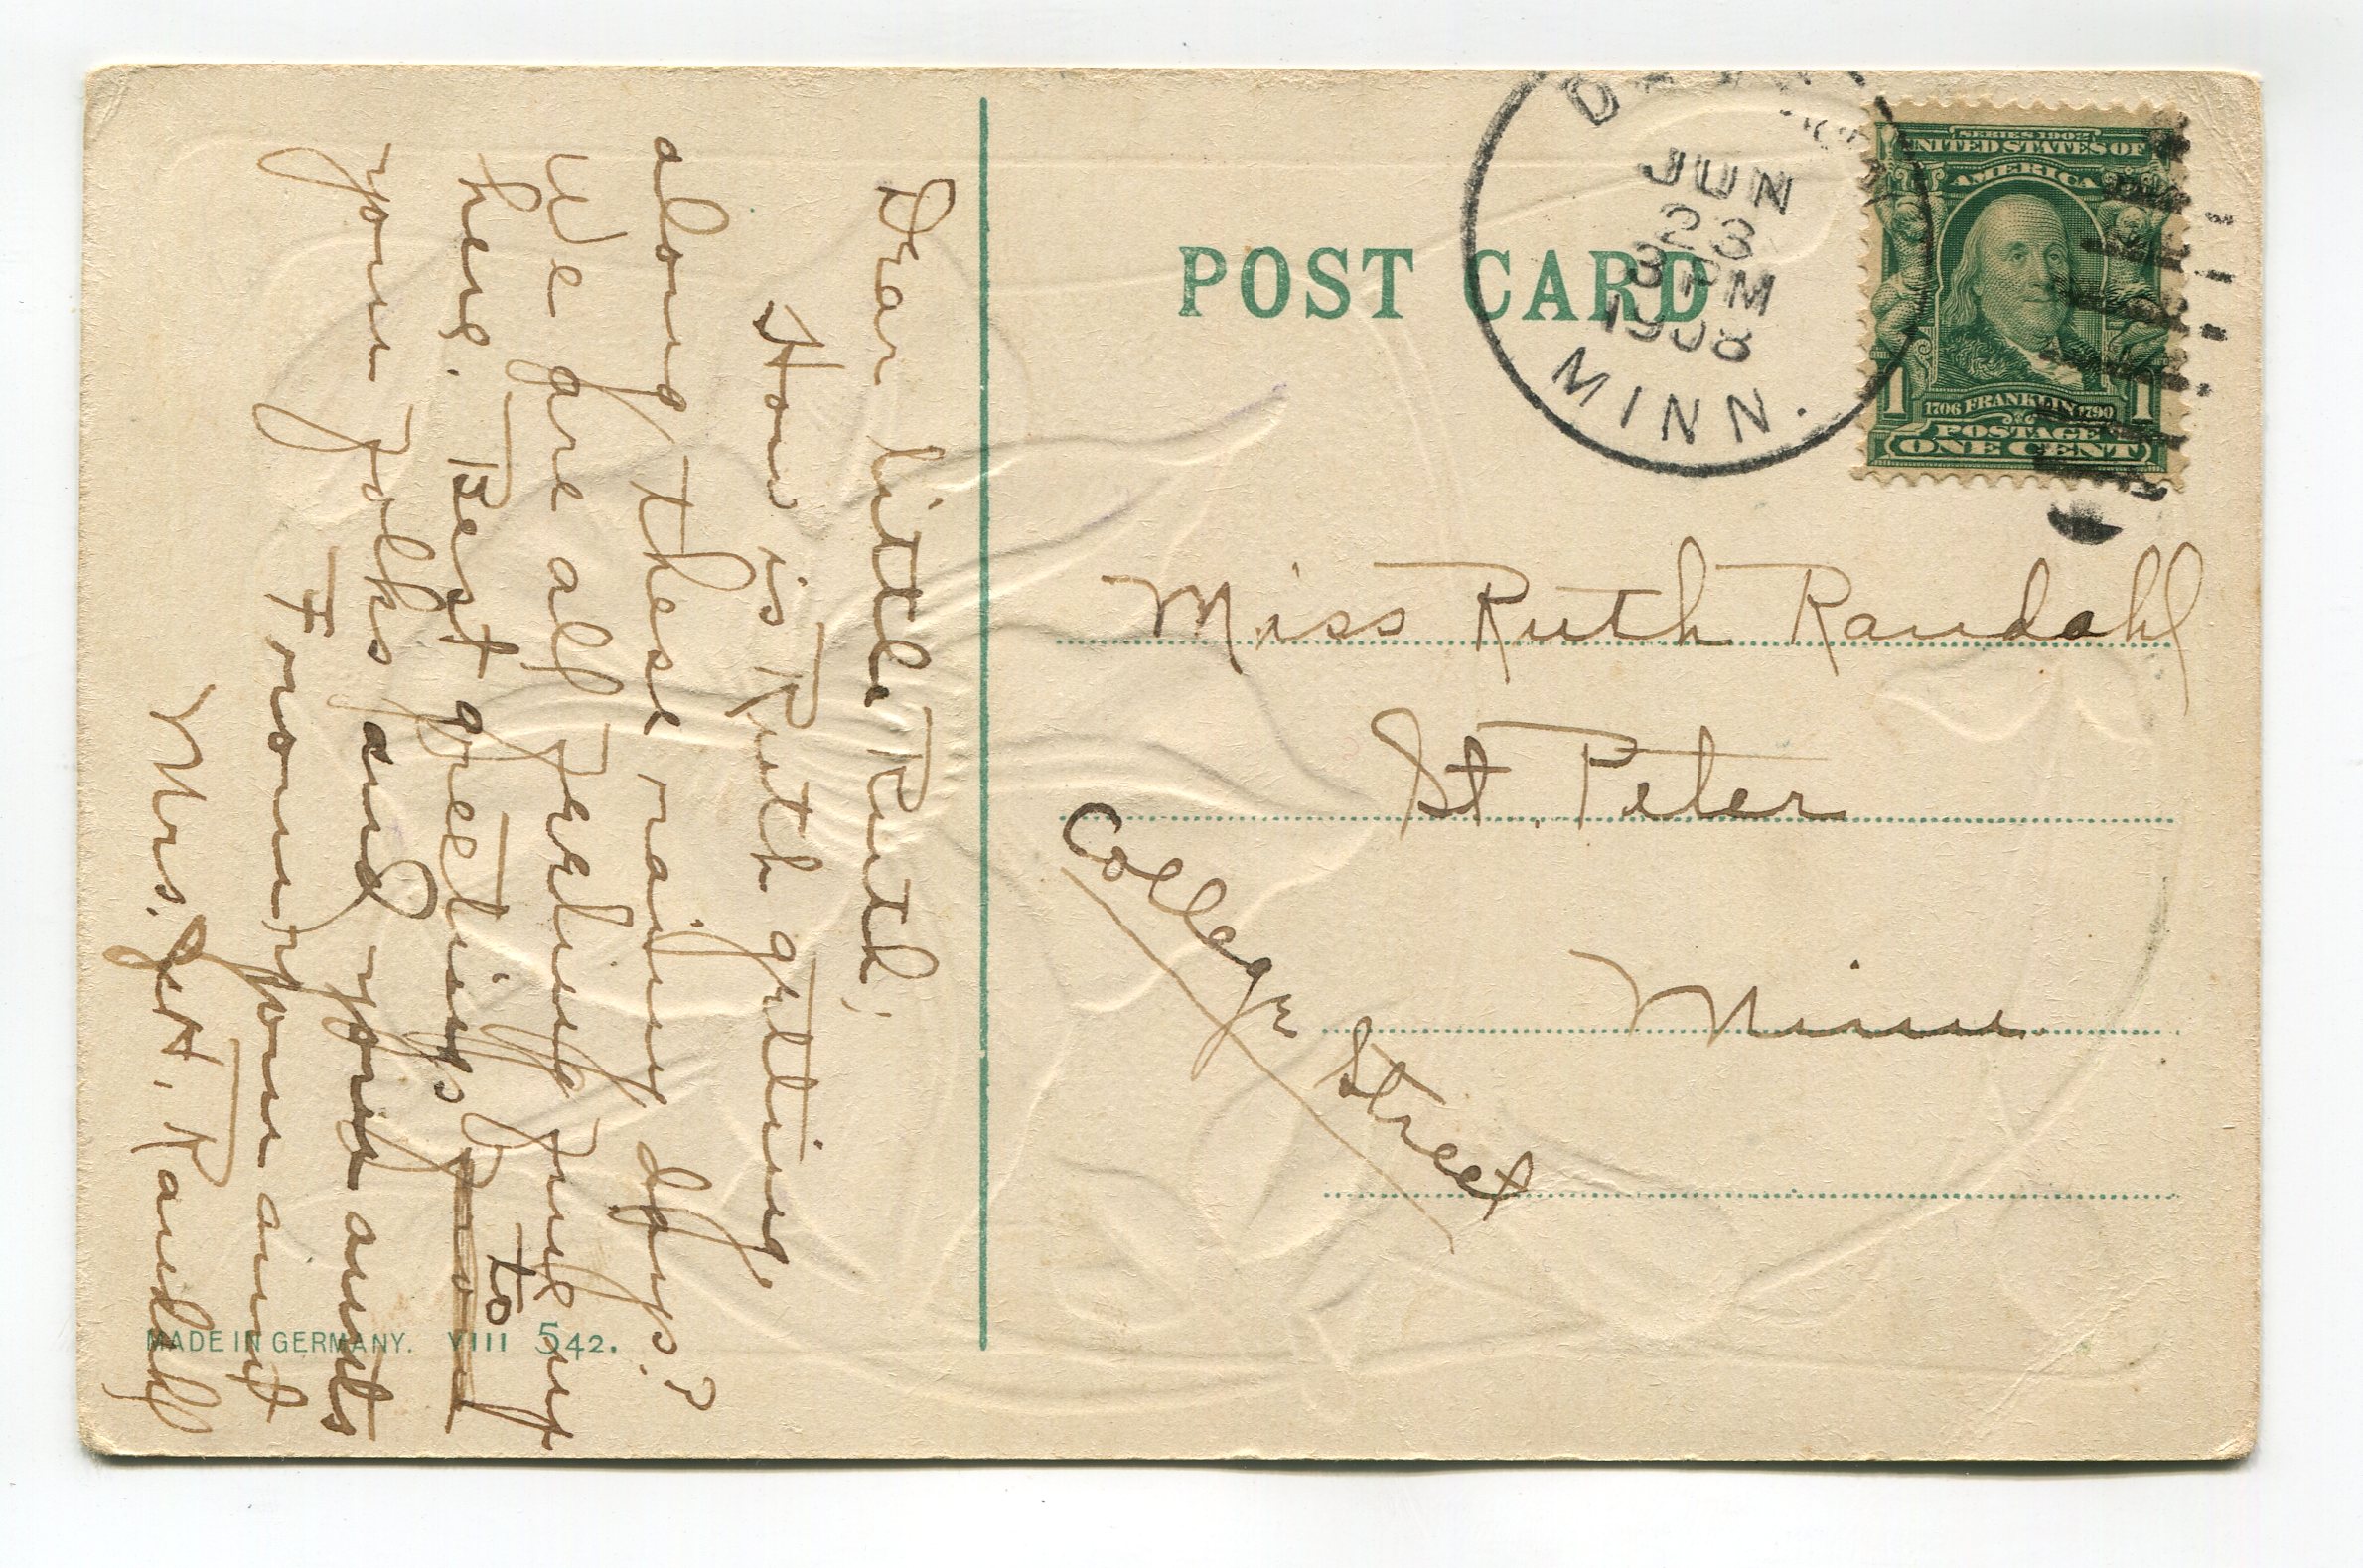 Dear little Ruth,
How is Ruth getting
along these rainy days?
We are all feeling fine out
here. Best greetings from to
your folks and your aunts
From your aunt
Mrs. Randahl
MADE IN GERMANY. VIII 542.
POST CARD
JUN
23
3 PM
1908
MINN.
SERIES 1902
UNITED STATES OF
AMERICA
1 1706 FRANKLIN 1790 1
POSTAGE
ONE CENT
Miss Ruth Randahl
St. Peter
Minn.
College Street